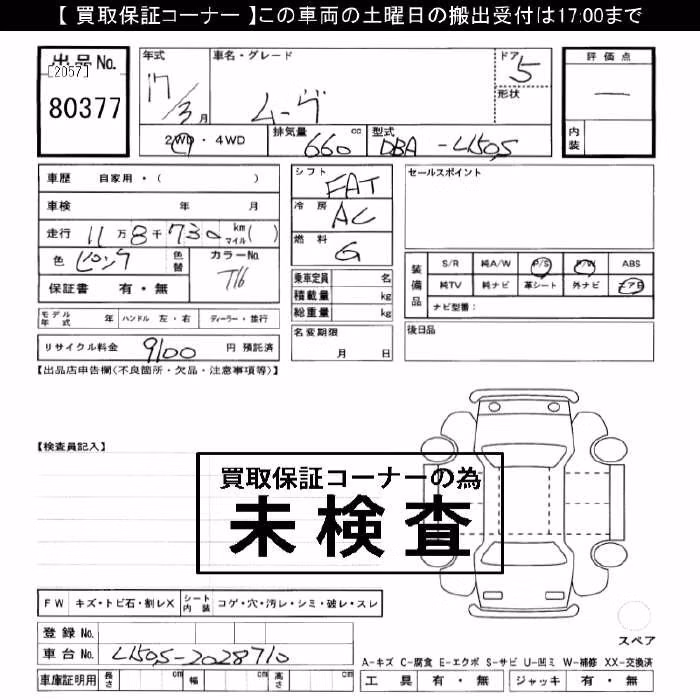 【 買取保証コーナー 】この車両の土曜日の搬出受付は17:00まで
出品No.
[2057]
80377
年式
17/3月
車名・グレード
ムーヴ
ドア
5
形状
評価点
―
内装
2WD・4WD
排気量 660 cc
型式 DBA-L150S
車歴 自家用・( )
車検 年 月
走行 11万8千730 km マイル( )
色 ピンク
色替
カラーNo. T16
保証書 有・無
シフト FAT
冷房 AC
燃料 G
乗車定員 名
積載量 kg
総重量 kg
セールスポイント
装備品
S/R 純A/W P/S P/W ABS
純TV 純ナビ 革シート 外ナビ エアB
ナビ型番:
モデル年式 年 ハンドル 左・右 ディーラー・並行
リサイクル料金 9100 円 預託済
名変期限
月 日
後日品
【出品店申告欄(不良箇所・欠品・注意事項等)】
【検査員記入】
買取保証コーナーの為
未検査
FW キズ・トビ石・割レX シート内装 コゲ・穴・汚レ・シミ・破レ・スレ
登録No.
車台No. L150S-2028710
車庫証明用 長さ cm 幅 cm 高さ cm
スペア
A-キズ C-腐食 E-エクボ S-サビ U-凹ミ W-補修 XX-交換済
工具 有・無 ジャッキ 有・無